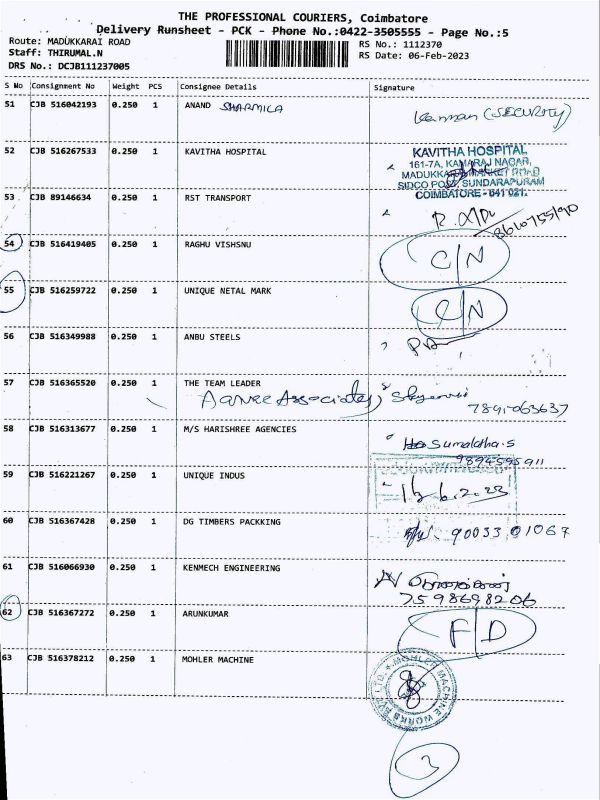 THE PROFESSIONAL COURIERS, Coimbatore
Delivery Runsheet - PCK - Phone No.:0422-3505555 - Page No.:5
Route: MADUKKARAI ROAD
RS No.: 1112370
Staff: THIRUMAL.N
RS Date: 06-Feb-2023
DRS No.: DCJB111237005
S No Consignment No Weight PCS Consignee Details Signature
51 CJB 516042193 0.250 1 ANAND SHARMILA (SECURITY)
52 CJB 516267533 0.250 1 KAVITHA HOSPITAL
KAVITHA HOSPITAL
161-7A, KAMARAJ NAGAR,
MADUKKARAI MARKET ROAD
SIDCO POST, SUNDARAPURAM
COIMBATORE - 641 021.
53 CJB 89146634 0.250 1 RST TRANSPORT
54 CJB 516419405 0.250 1 RAGHU VISHSNU C/N
55 CJB 516259722 0.250 1 UNIQUE NETAL MARK C/N
56 CJB 516349988 0.250 1 ANBU STEELS
57 CJB 516365520 0.250 1 THE TEAM LEADER
Aarvee Associates,
7891063637
58 CJB 516313677 0.250 1 M/S HARISHREE AGENCIES Sumalatha.S
9894595911
59 CJB 516221267 0.250 1 UNIQUE INDUS
60 CJB 516367428 0.250 1 DG TIMBERS PACKKING 90033 01067
61 CJB 516066930 0.250 1 KENMECH ENGINEERING
7598698206
62 CJB 516367272 0.250 1 ARUNKUMAR F/D
63 CJB 516378212 0.250 1 MOHLER MACHINE
MOHLER MACHINE WORKS PVT LTD.
3